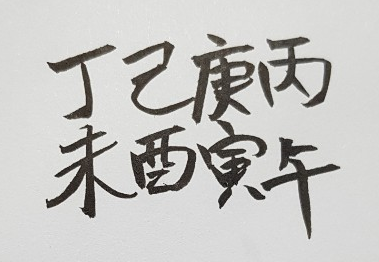 丁己庚丙
未酉寅午